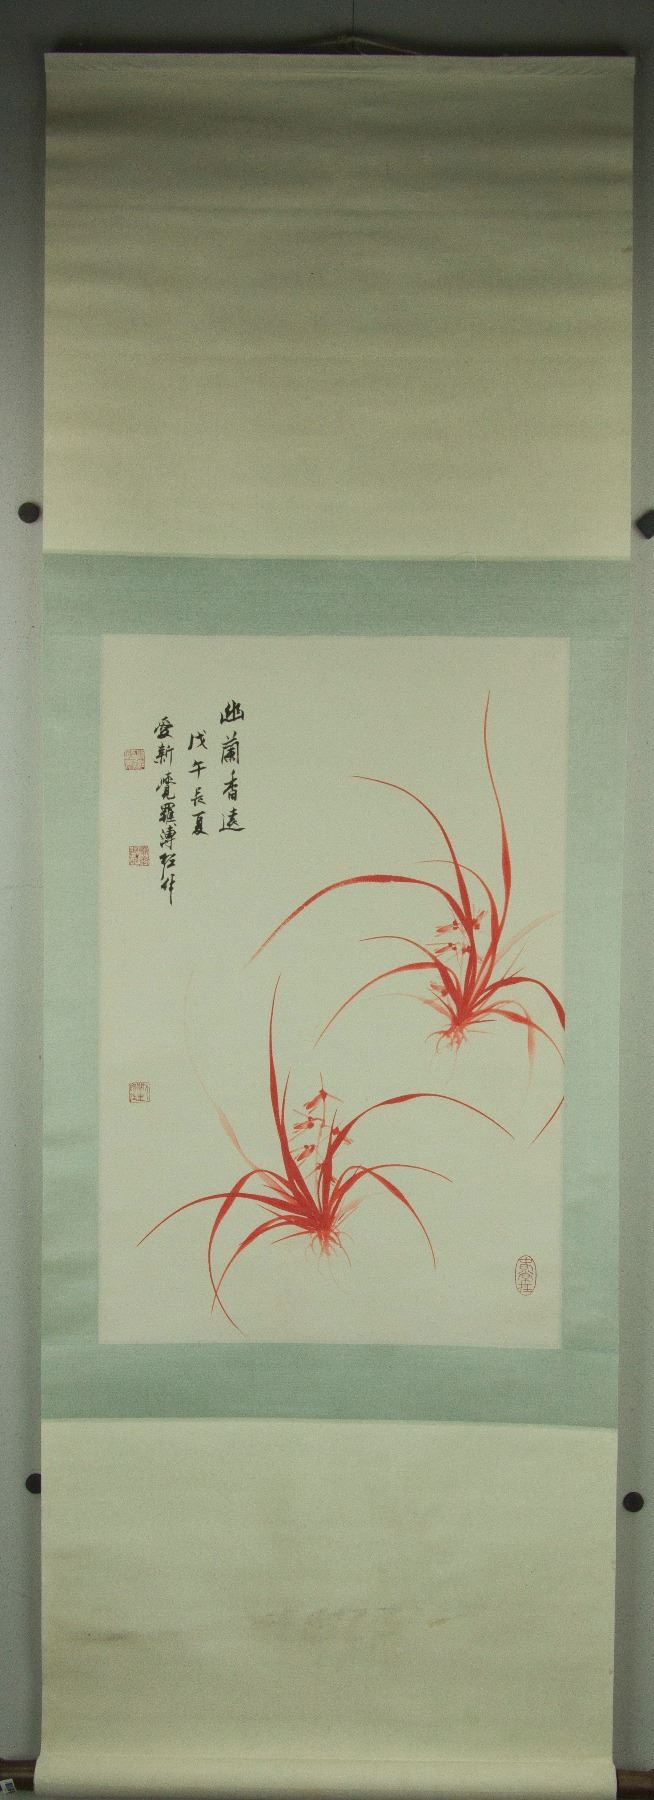 幽蘭香遠
戊午長夏
愛新覺羅溥松作